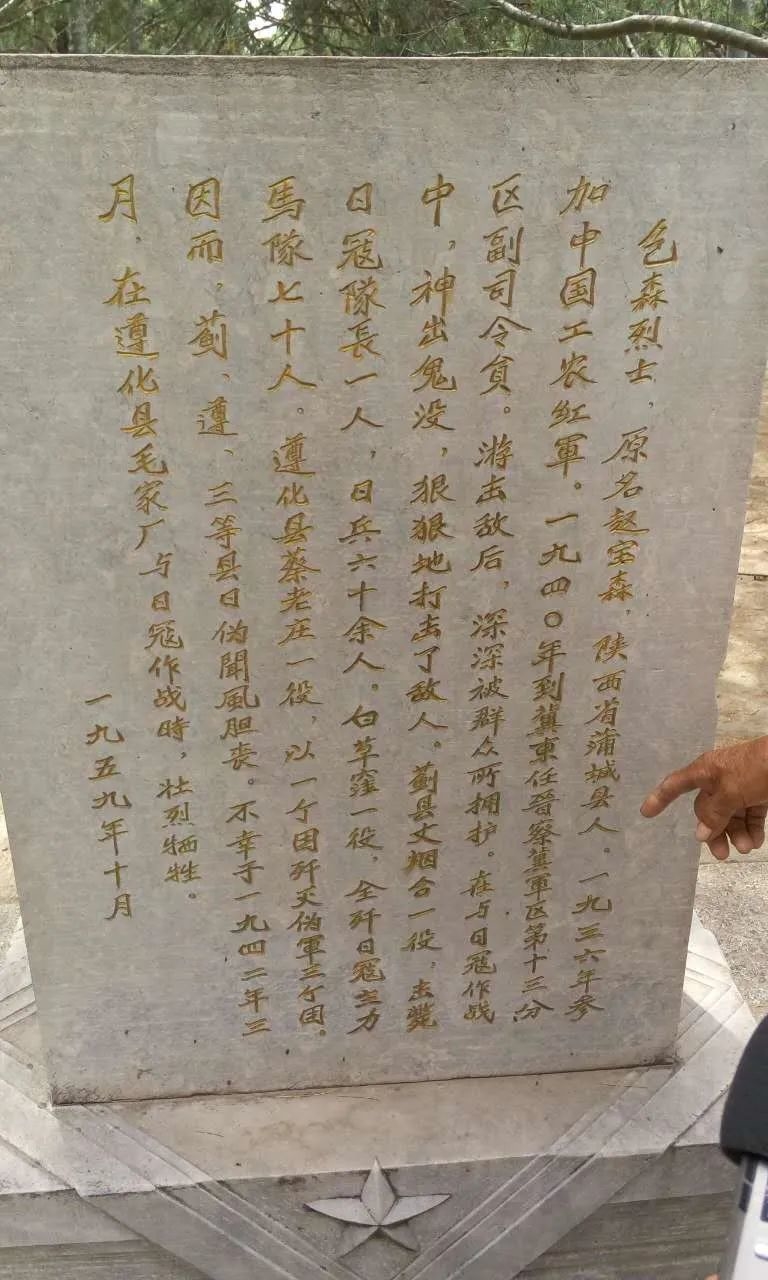 包森烈士，原名赵宝森，陕西省蒲城县人。一九三六年参
加中国工农红軍。一九四〇年到冀東任晉察冀軍区第十三分
区副司令員。游击敌后，深深被群众所拥护。在与日冦作战
中，神出鬼没，狠狠地打击了敌人。蓟县丈烟台一役，击毙
日冦隊長一人，日兵六十余人。白草窪一役，全歼日冦主力
馬隊七十人。遵化县蔡老庄一役，以一个团歼灭伪軍三个团。
因而，蓟、遵、三等县日伪聞風胆丧。不幸于一九四二年三
月，在遵化县毛家厂与日冦作战時，壮烈牺牲。
一九五九年十月